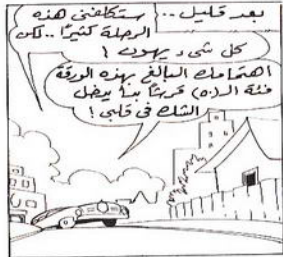 بعد قليل ..
ستكلفني هذه
الرحلة كثيرًا .. لكن
كل شيء يهون !
اهتمامك البالغ بهذه الورقة
فئة الـ(٥٠) قرشًا بدأ يدخل
الشك في قلبي !